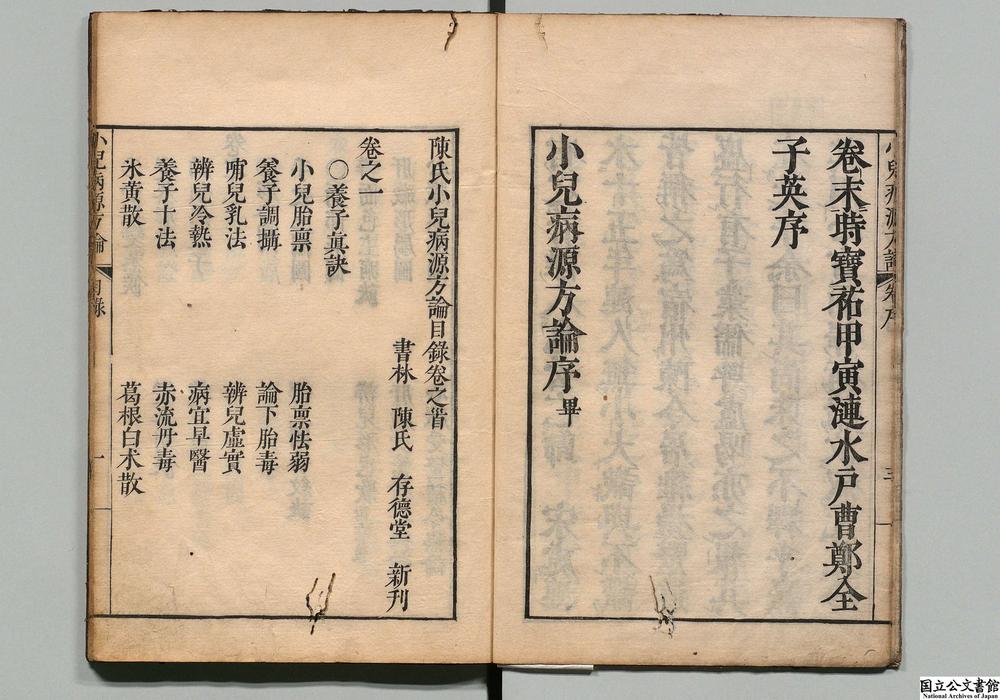 卷末時寶祐甲寅漣水戶曹鄭全
子英序
小兒病源方論序 畢
陳氏小兒病源方論目錄卷之首
書林 陳氏 存德堂 新刊
卷之一
○養子真訣
小兒胎禀 胎禀怯弱
養子調攝 論下胎毒
哺兒乳法 辨兒虛實
辨兒冷熱 病宜早醫
養子十法 赤流丹毒
氷黃散 葛根白术散
小兒病源方論 目錄 一
国立公文書館
National Archives of Japan